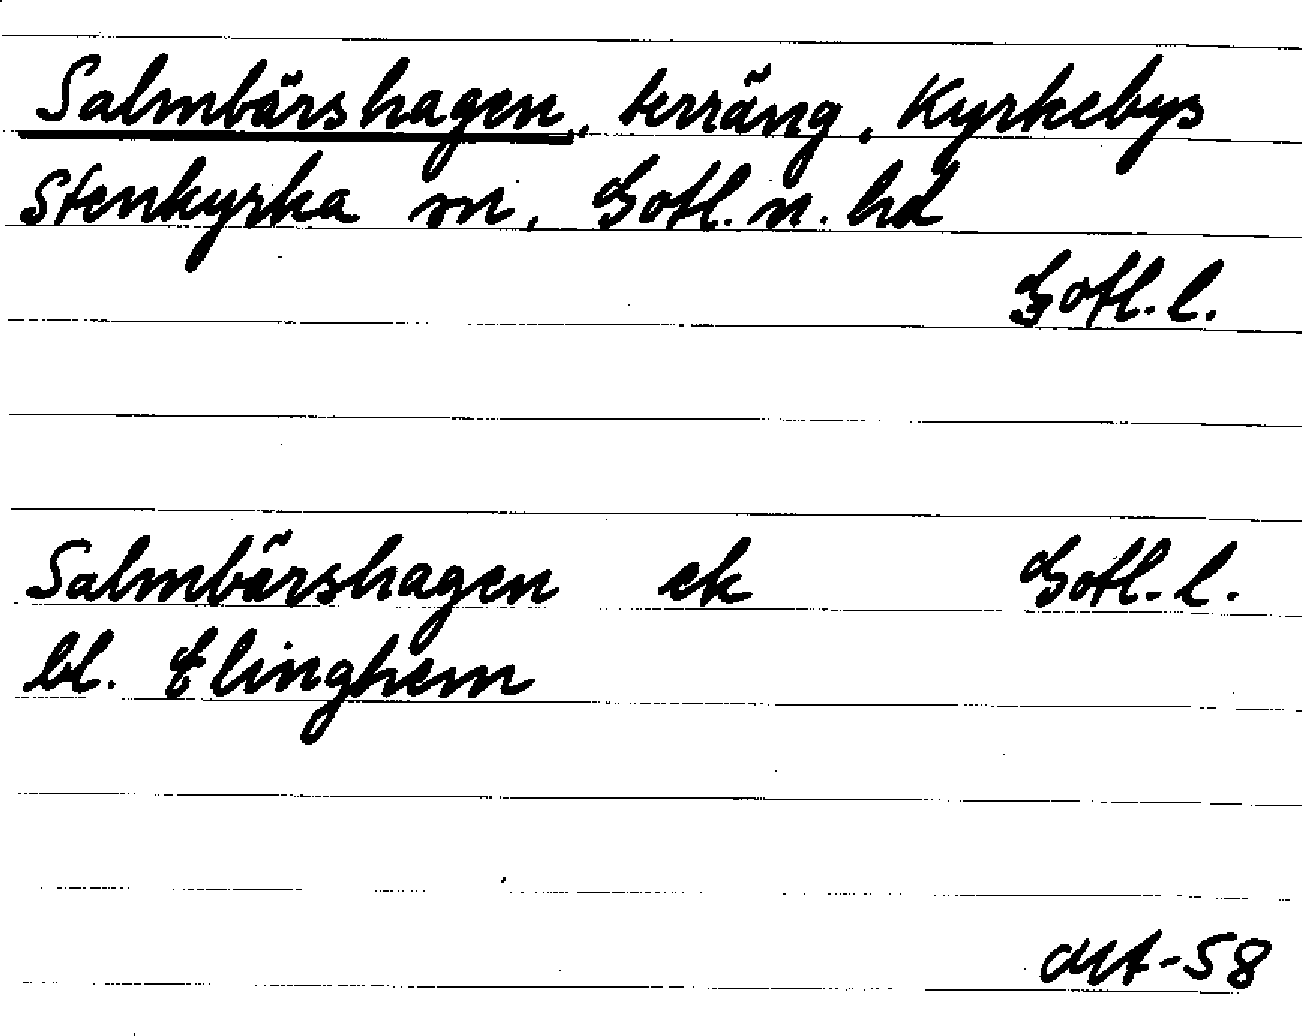 Salmbärshagen, terräng, Kyrkebys
Stenkyrka sn, Gotl. n. hd
Gotl. l.
Salmbärshagen ek Gotl. l.
bl. Elinghem
-58